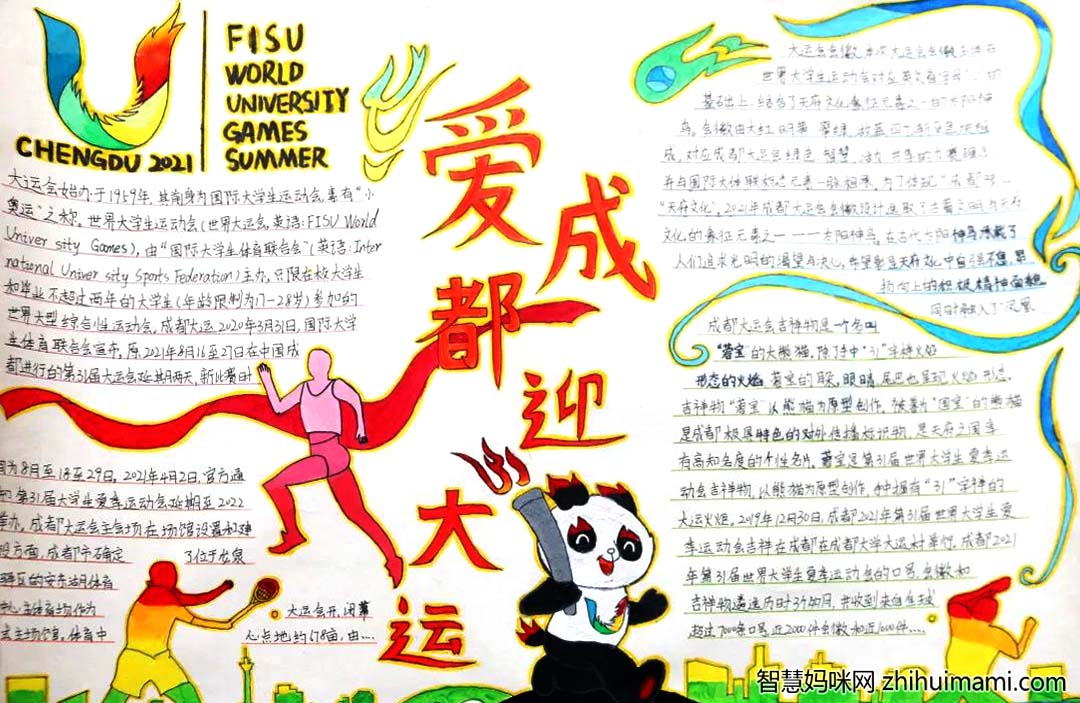 FISU
WORLD
UNIVERSITY
GAMES
SUMMER
CHENGDU 2021
爱成都
迎大运
大运会始办于1959年,其前身为国际大学生运动会,素有“小
奥运”之称。世界大学生运动会(世界大运会,英语:FISU World
Univer sity Games),由“国际大学生体育联合会”(英语:Inter
national Univer sity Sports Federation)主办,只限在校大学生
和毕业不超过两年的大学生(年龄限制为17-28岁)参加的
世界大型综合性运动会。成都大运2020年3月31日,国际大学
生体育联合会宣布,原2021年8月16至27日在中国成
都进行的第31届大运会延期两天,新比赛日
因为8月至18至29日。2021年4月2日,官方通
知第31届大学生夏季运动会延期至2022
举办。成都大运会主会场在场馆设置和建
设方面,成都市确定 了位于龙泉
驿区的安东湖体育
中心主体育场作为
主场馆。体育中
大运会开、闭幕
心占地约618亩,由...
大运会会徽,本次大运会会徽主体在
世界大学生运动会对应英文首字母“ 的
基础上,结合了天府文化象征元素之一的太阳神
鸟。会徽由大红、明黄、翠绿、湖蓝四
成,对应成都大运会绿色、智慧、活力、共享的
并与国际大体联标志元素一脉相承。为了体现“成都”
“天府文化”,2021年成都大运会会徽设计选取了古蜀文明与天府
文化的象征元素之一———太阳神鸟。在古代太阳神鸟承载了
人们追求光明的渴望与决心,
物向上的积极精神面貌
同时融入了“凤凰
成都大运会吉祥物是一个名叫
“蓉宝”的大熊猫,除了手中“31”字样火焰
形态的火焰,蓉宝的耳朵,眼睛,尾巴也呈现火焰形态。
吉祥物“蓉宝”以熊猫为原型创作,被誉为“国宝”的熊猫
是成都极具特色的对外传播标识物,是天府之国享
有高知名度的个性名片。蓉宝是第31届世界大学生夏季运
动会吉祥物,以熊猫为原型创作,手中握有“31”字样的
大运火炬。2019年12月30日,成都2021年第31届世界大学生夏
季运动会吉祥在成都在成都大学大运村举行。成都2021
年第31届世界大学生夏季运动会的口号、会徽和
吉祥物遴选历时3个月,并收到来自全球
超过7000条口号,近2000件会徽和近1000件....
31
智慧妈咪网 zhihuimami.com